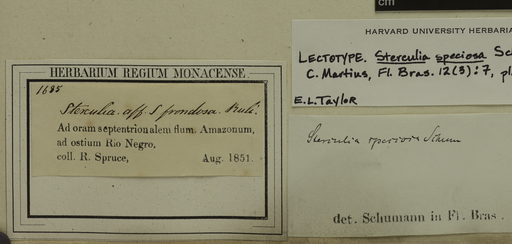 cm
HERBARIUM REGIUM MONACENSE.
1688
Sterculia aff. S. frondosa
Ad oram septentrionalem flum. Amazonum,
ad ostium Rio Negro.
coll. R. Spruce, Aug. 1851.
HARVARD UNIVERSITY HERBARIA
LECTOTYPE. Sterculia speciosa
C. Martius, Fl. Bras. 12(3): 7, pl
E.L. Taylor
Sterculia speciosa Schum
det. Schumann in Fl. Bras.